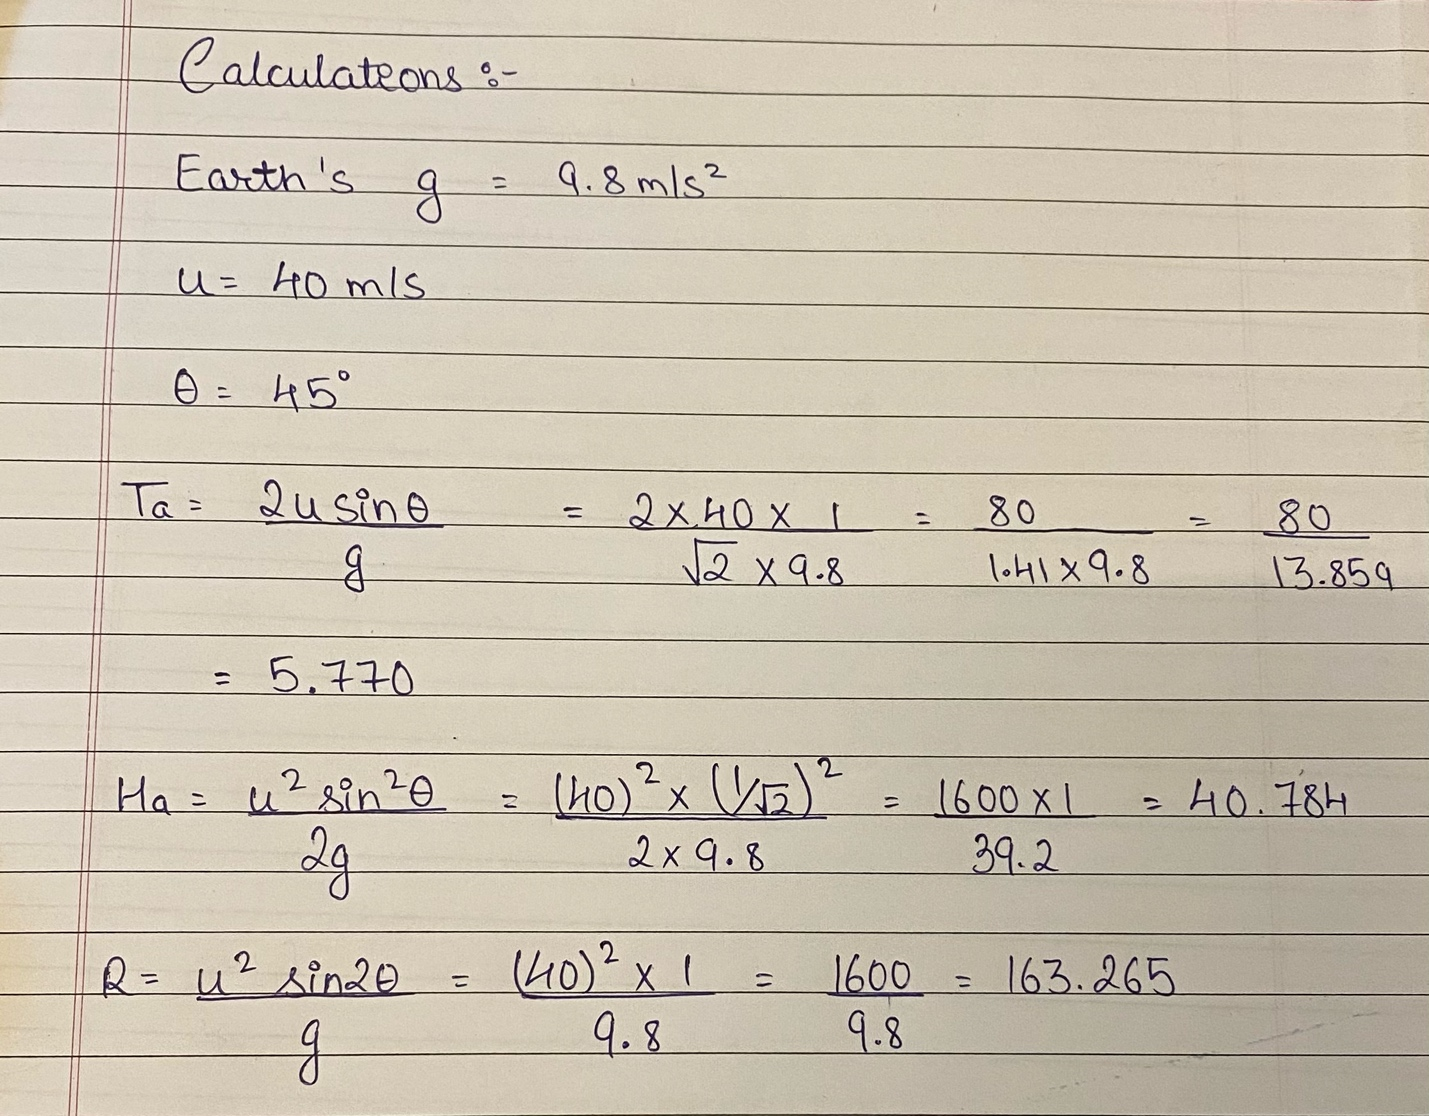 Calculateons :-
Earth's g = 9.8 m/s²
u = 40 m/s
θ = 45°
Ta = 2u sinθ / g = 2 × 40 × 1 / √2 × 9.8 = 80 / 1.41 × 9.8 = 80 / 13.859
= 5.770
Ha = u² sin²θ / 2g = (40)² × (1/√2)² / 2 × 9.8 = 1600 × 1 / 39.2 = 40.784
R = u² sin2θ / g = (40)² × 1 / 9.8 = 1600 / 9.8 = 163.265